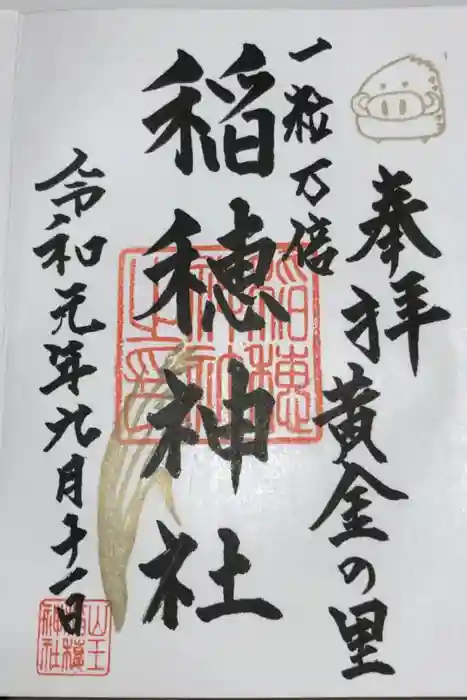 奉拝 黄金の里
一粒万倍
稲穂神社
令和元年九月十一日
稲穂神社之印
山王稲穂神社